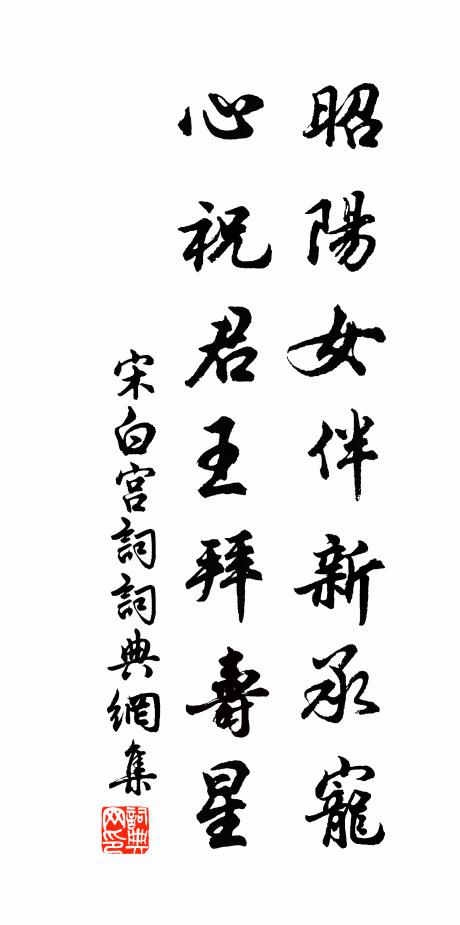 昭陽女伴新承寵
心祝君王拜壽星
宋白宮詞詞典網集
詞典网印